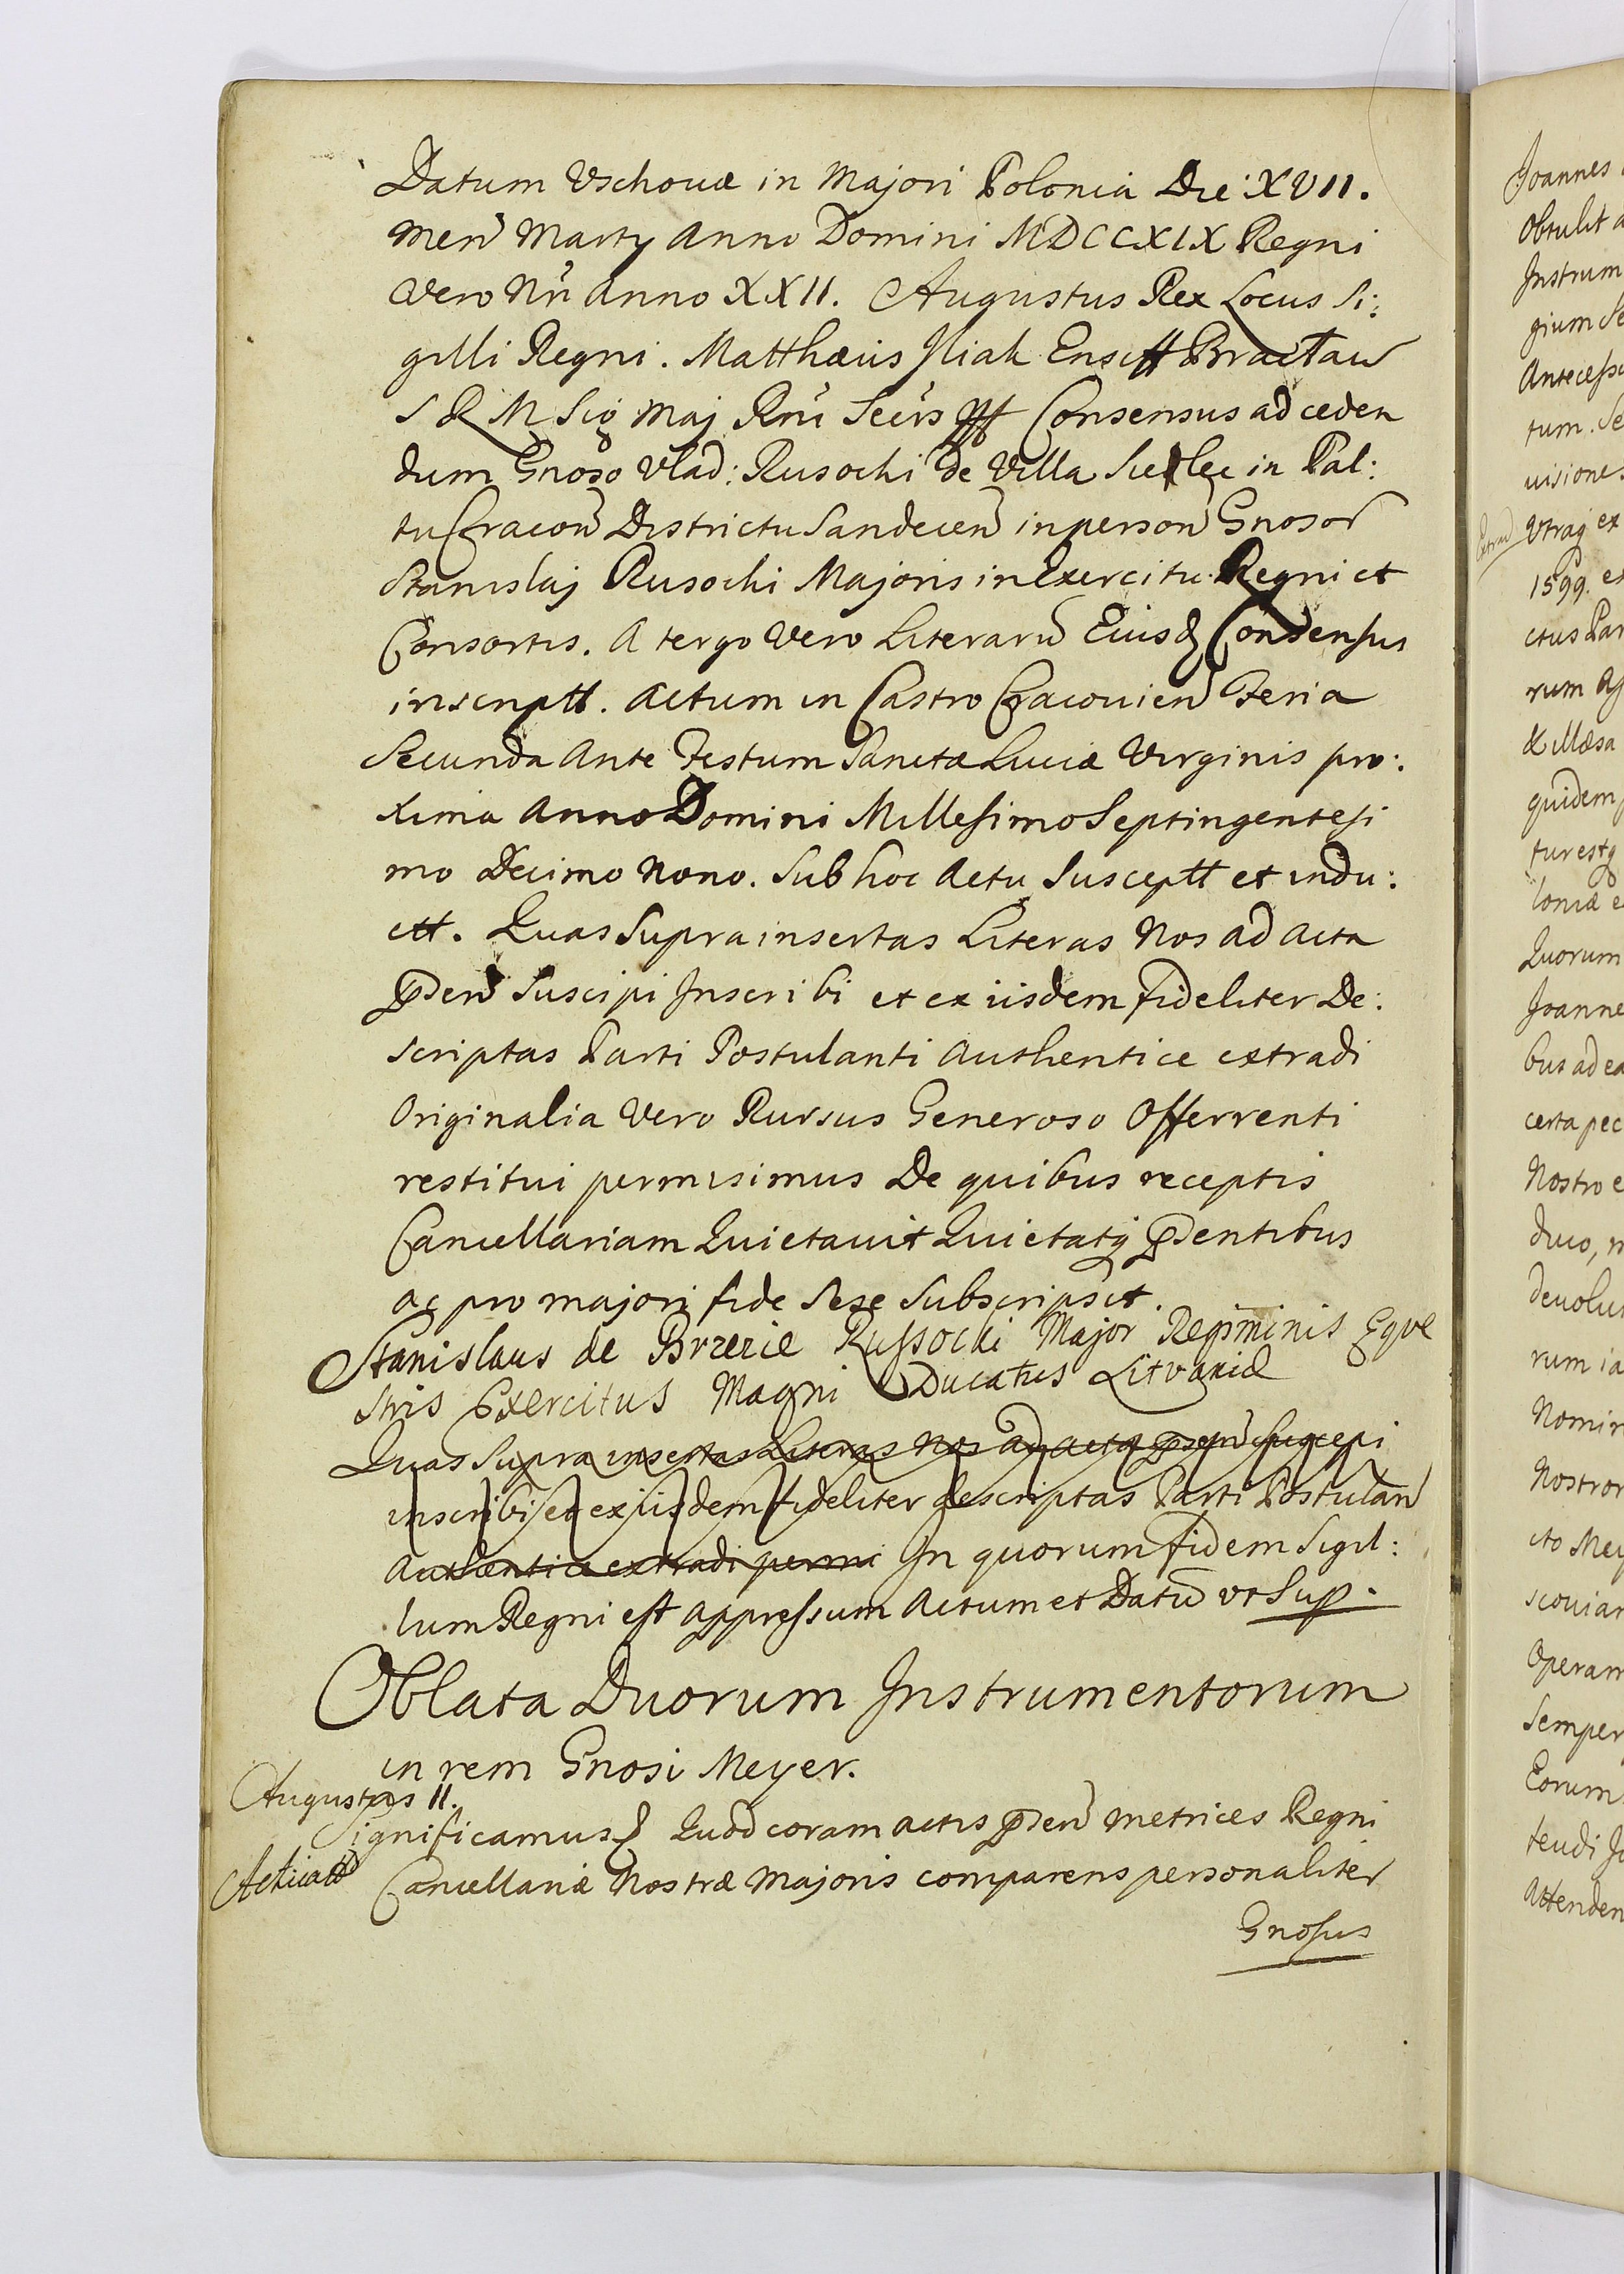 Datum Vschovæ in Majori Polonia Die XVII.
Men Martÿ Anno Domini MDCCXIX Regni
Vero Nri Anno XXII. Augustus Rex Locus Si:
gilli Regni. Matthæus Iliak Ensiff Bractav
S R M Sig Maj Rni Secrs Consensus ad ceden
dum Gnoso Vlad: Rusocki de Villa Siedlec in Pal:
tu Cracov Districtu Sandecen in person Gnosor
Stanislaj Rusocki Majoris in Exercitu Regni et
Consortis. A tergo Vero Literaru Eiusd Consensus
inscriptt. Actum in Castro Cracovien Feria
Secunda Ante Festum Sanctæ Luciæ Virginis pro:
xima Anno Domini Millesimo Septingentesi
mo Decimo Nono. Sub hoc Actu Susceptt et indu:
ctt. Quas Supra insertas Literas Nos ad Acta
pden Suscipi Inscribi et ex iisdem fideliter De:
scriptas Parti Postulanti Authentice extradi
Originalia Vero Rursus Generoso Offerrenti
restitui permisimus De quibus receptis
Cancellariam Quietavit Quietatq pdentibus
ac pro majori fide Sese Subscripsit.
Stanislaus de Brzezie Russocki Major Regiminis Eque
stris Exercitus Magni Ducatus Litvaniæ
Quas Supra insertas Literas Nos ad acta psen Suscepi
inscribi et ex iisdem fideliter descriptas Parti Postulan
Authentice extradi permi In quorum fidem Sigil:
lum Regni est appressum Actum et Datu vt Sup.
Oblata Duorum Instrumentorum
in rem Gnosi Meyer.
Augustus II.
Significamus Quod coram actis pden Metrices Regni
Acticatt Cancellariæ Nostræ Majoris comparens personaliter
Gnosus
Joannes
Obtulit a
Instrum
gium Se
Antecess
tum. Se
visiones
Extrad Vtraq ex
1599. et
ctus Par
rum
& illæsa
quidem
tur estq
loniæ e
Quorum
Joanne
bus ad ea
certa pec
Nostro e
duo,
devolu
rum ia
Nomin
Nostror
cto Mey
scovian
Operam
Semper
Eorum
tendi
Attenden